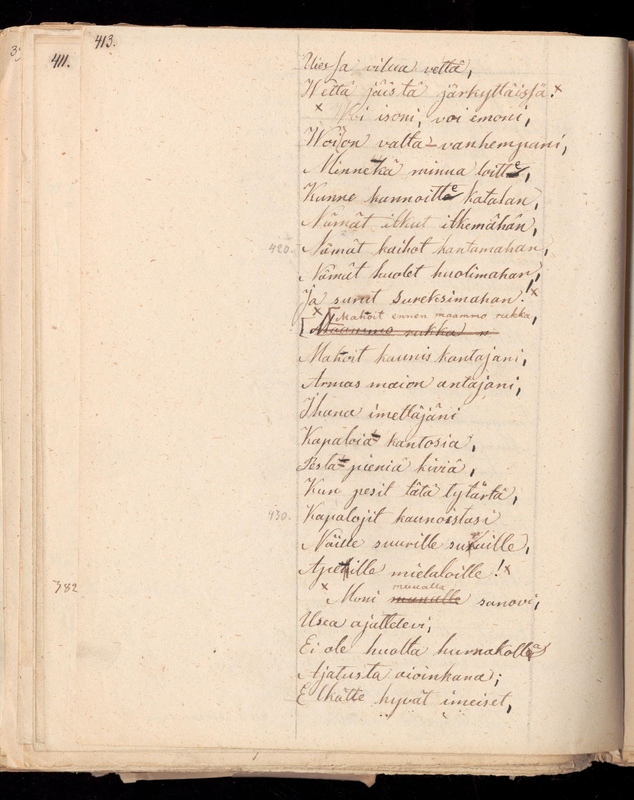 413.
411.
Uiessa vilua vettä,
Wettä jäistä järkyttäissä.
Woi isoni, voi emoni,
Woi on valta-vanhempani,
Minnekä minua loitte,
Kunne kannoitte katalan,
Nämät itkut itkemähän,
420. Nämät kaihot kantamahan,
Nämät huolet huolimahan,
Ja surut sureksimahan!
Mahoit ennen maammo rukka,
Maammo rukka
Mahoit kaunis kantajani,
Armas maion antajani,
Ihana imettäjäni
Kapaloia kantosia,
Pestä pieniä kiviä,
Kun pesit tätä tytärtä,
430. Kapalojit kaunoistasi
Näille suurille suruille,
Ape'ille mielaloille!
782
muualla
Moni muualla sanovi,
Usea ajattelevi;
Ei ole huolta hurnakolla
Ajatusta aioinkana;
Elkätte hyvät imeiset,